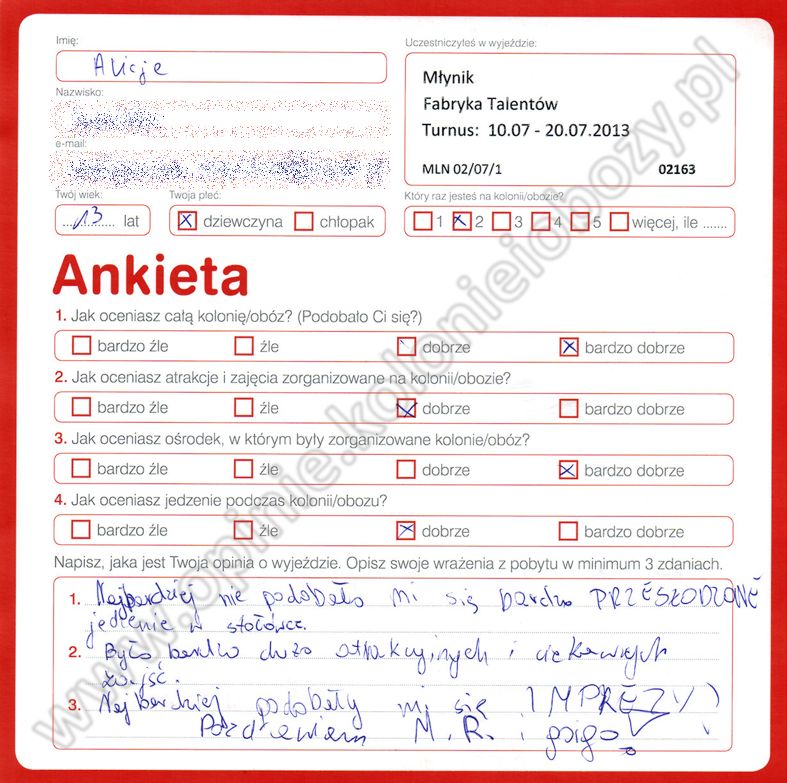 Imię:
Alicje
Nazwisko:
e-mail:
Uczestniczyłeś w wyjeździe:
Młynik
Fabryka Talentów
Turnus: 10.07 - 20.07.2013
MLN 02/07/1 02163
Twój wiek:
13 lat
Twoja płeć:
dziewczyna chłopak
Który raz jesteś na kolonii/obozie?
1 2 3 4 5 więcej, ile .......
Ankieta
1. Jak oceniasz całą kolonię/obóz? (Podobało Ci się?)
bardzo źle źle dobrze bardzo dobrze
2. Jak oceniasz atrakcje i zajęcia zorganizowane na kolonii/obozie?
bardzo źle źle dobrze bardzo dobrze
3. Jak oceniasz ośrodek, w którym były zorganizowane kolonie/obóz?
bardzo źle źle dobrze bardzo dobrze
4. Jak oceniasz jedzenie podczas kolonii/obozu?
bardzo źle źle dobrze bardzo dobrze
Napisz, jaka jest Twoja opinia o wyjeździe. Opisz swoje wrażenia z pobytu w minimum 3 zdaniach.
1. Najbardziej nie podobało mi się bardzo PRZESŁODZONE
jedzenie w stołówce.
2. Było bardzo dużo atrakcyjnych i ciekawych
zajęć.
3. Najbardziej podobały mi się IMPREZY)
Pozdrawiam M.R. i
www.opinie.kolonieiobozy.pl